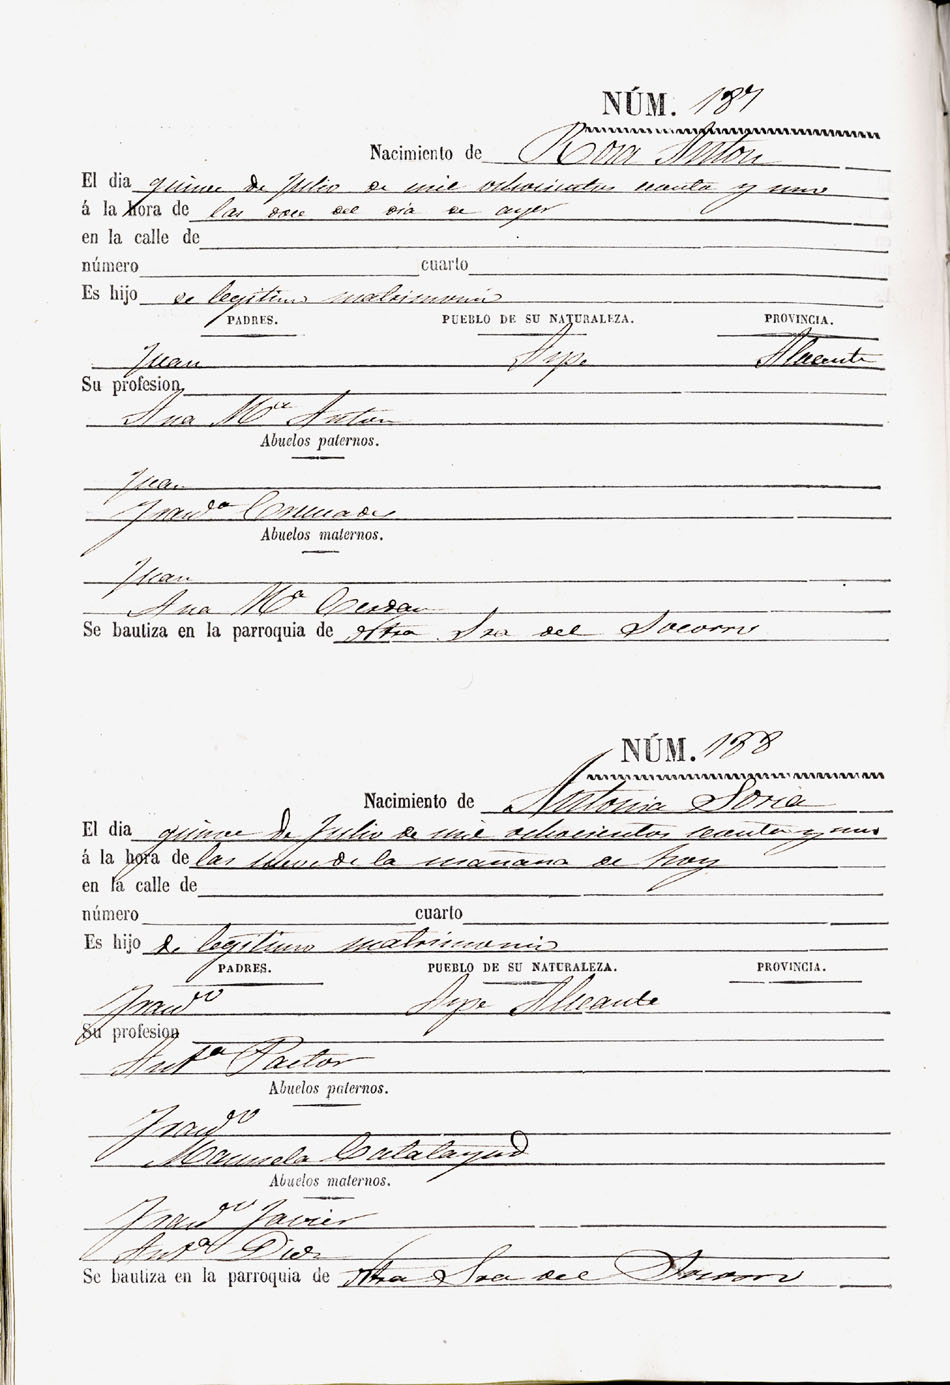 NÚM. 187
Nacimiento de Rosa Anton
El dia quince de Julio de mil ochocientos sesenta y uno
á la hora de las doce del dia de ayer
en la calle de
número cuarto
Es hijo de legitimo matrimonio
PADRES. PUEBLO DE SU NATURALEZA. PROVINCIA.
Juan Aspe Alicante
Su profesion
Ana Mª Anton
Abuelos paternos.
Juan
Francᵃ Cremades
Abuelos maternos.
Juan
Ana Mª Cerdan
Se bautiza en la parroquia de Ntra Sra del Socorro
NÚM. 188
Nacimiento de Antonia Soria
El dia quince de Julio de mil ochocientos sesenta y uno
á la hora de las nueve de la mañana de hoy
en la calle de
número cuarto
Es hijo de legitimo matrimonio
PADRES. PUEBLO DE SU NATURALEZA. PROVINCIA.
Francᵒ Aspe Alicante
Su profesion
Antᵃ Pastor
Abuelos paternos.
Francᵒ
Manuela Calatayud
Abuelos maternos.
Francᵒ Javier
Antᵃ Diez
Se bautiza en la parroquia de Ntra Sra del Socorro